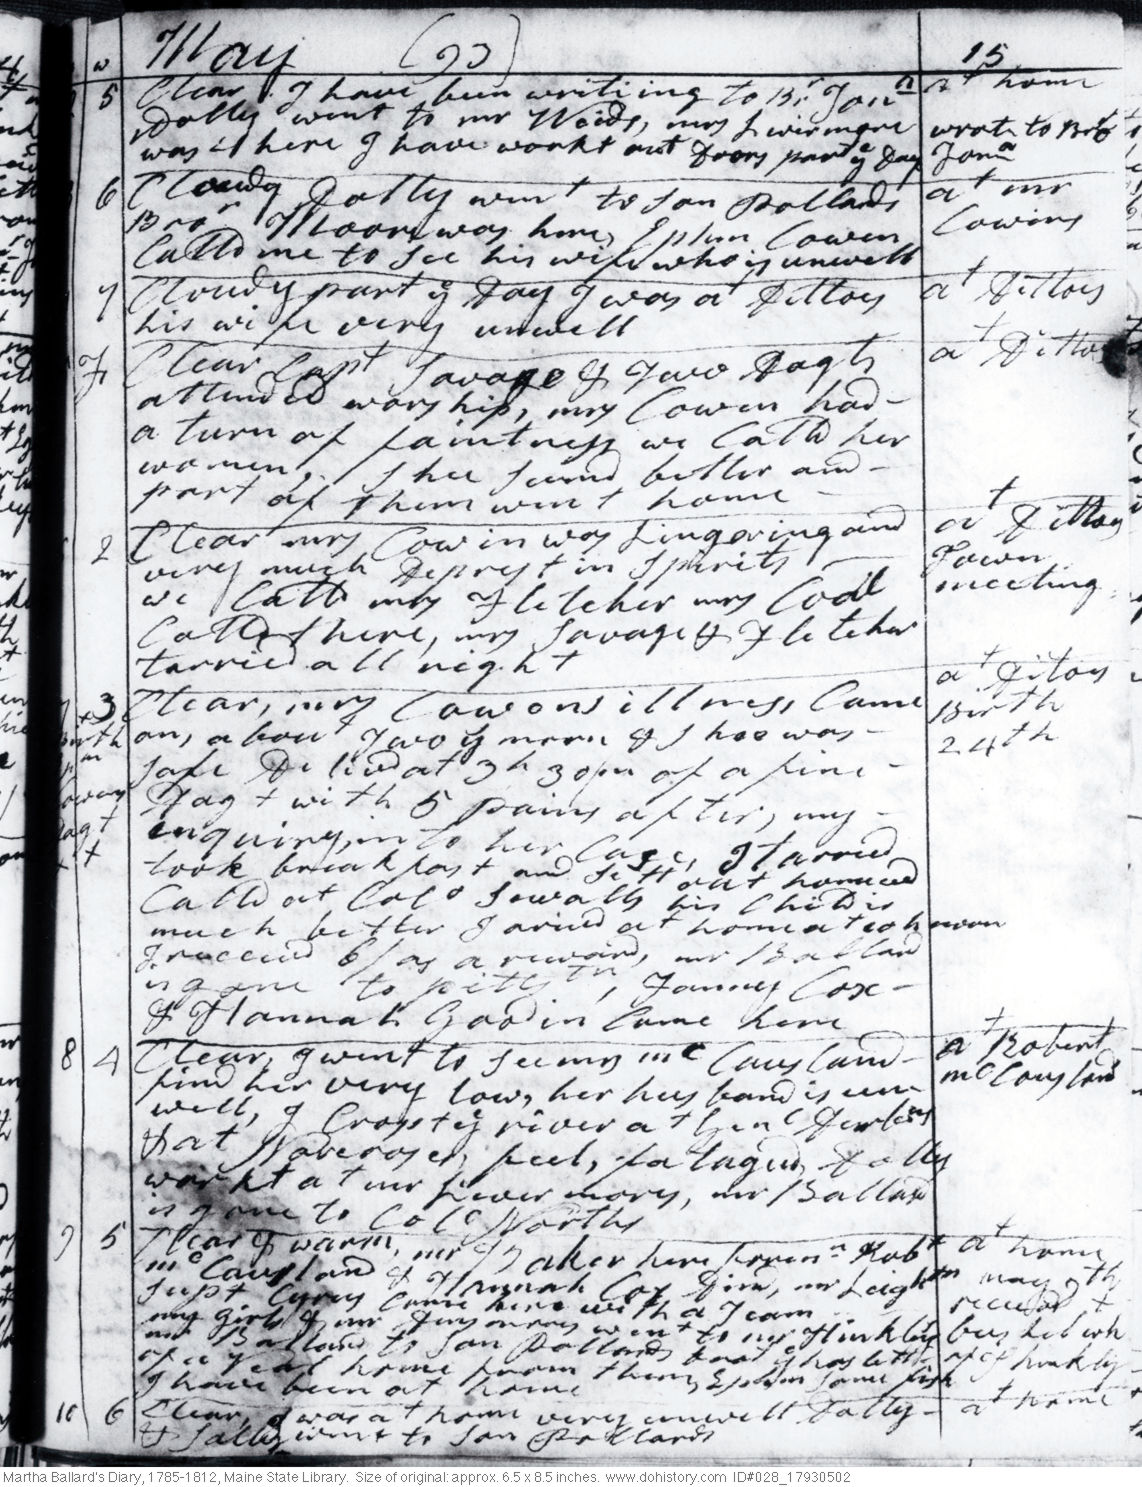 w May (93) 15
5 Clear. I have been writeing to Br Jona at home
Dolly went to mr Woods, mrs Livermore wrote to Bro
was here I have workt out Doors part ye Day Jona
6 Cloudy Dolly went to Son Pollards at mr
Bror Moore was here, Ephm Cowen Cowens
Calld me to See his wife who is unwell
7 Cloudy part ye Day I was at Dittoes at Dittoes
his wife very unwell
F Clear Capt Savage & Two Dagts at Dittoes
attended worship, mrs Cowen had
a turn of faintness we Calld her
women, Shee Seemd better and
part of them went home
2 Clear mrs Cowin was Lingering and at Dittoes
very much Deprest in Spirits Town
we Calld mrs Fletcher mrs Coil meeting
Calld there, mrs Savage & Fletcher
tarried all night
3 Clear, mrs Cowons illness Came at Ditoes
on, about Two ye morn & Shee was Birth
Safe Delivd at 3h 30m of a fine 24th
Dagt with 5 pains after, my
enquiry, into her Case, I tarried
took breakfast and Sett out
Calld at Colo Sewalls his Child is
much better I arivd at home at 10 h morn
I receivd 6/ as a reward, mr Ballard
is gone to pittstn, Fanney Cox
& Hannah Goodin Came here
8 4 Clear, I went to See mrs mc Causland at Robert
find her very low, her husband is un mc Causlands
well, I Crosst ye river at
& at feel, fatagud, Dolly
workt at mr Livermores, mr Ballard
is gone to Colo Norths
9 5 Clear & warm, mr Baker here foren Robt at home
mc Causland & Hannah Cox Dind, mr
Supt Cyrus Came here with a Team may 9th
my girls & mr went to mr Hinkleys receivd 1
mr Ballard to Son Pollards bushel wh
of home from them, Ephm Some fish of
I have been at home
10 6 Clear, I was at home very unwell Dolly at home
& Sally went to Son Pollards
Martha Ballard's Diary, 1785-1812, Maine State Library. Size of original: approx. 6.5 x 8.5 inches. www.dohistory.com ID#028_17930502